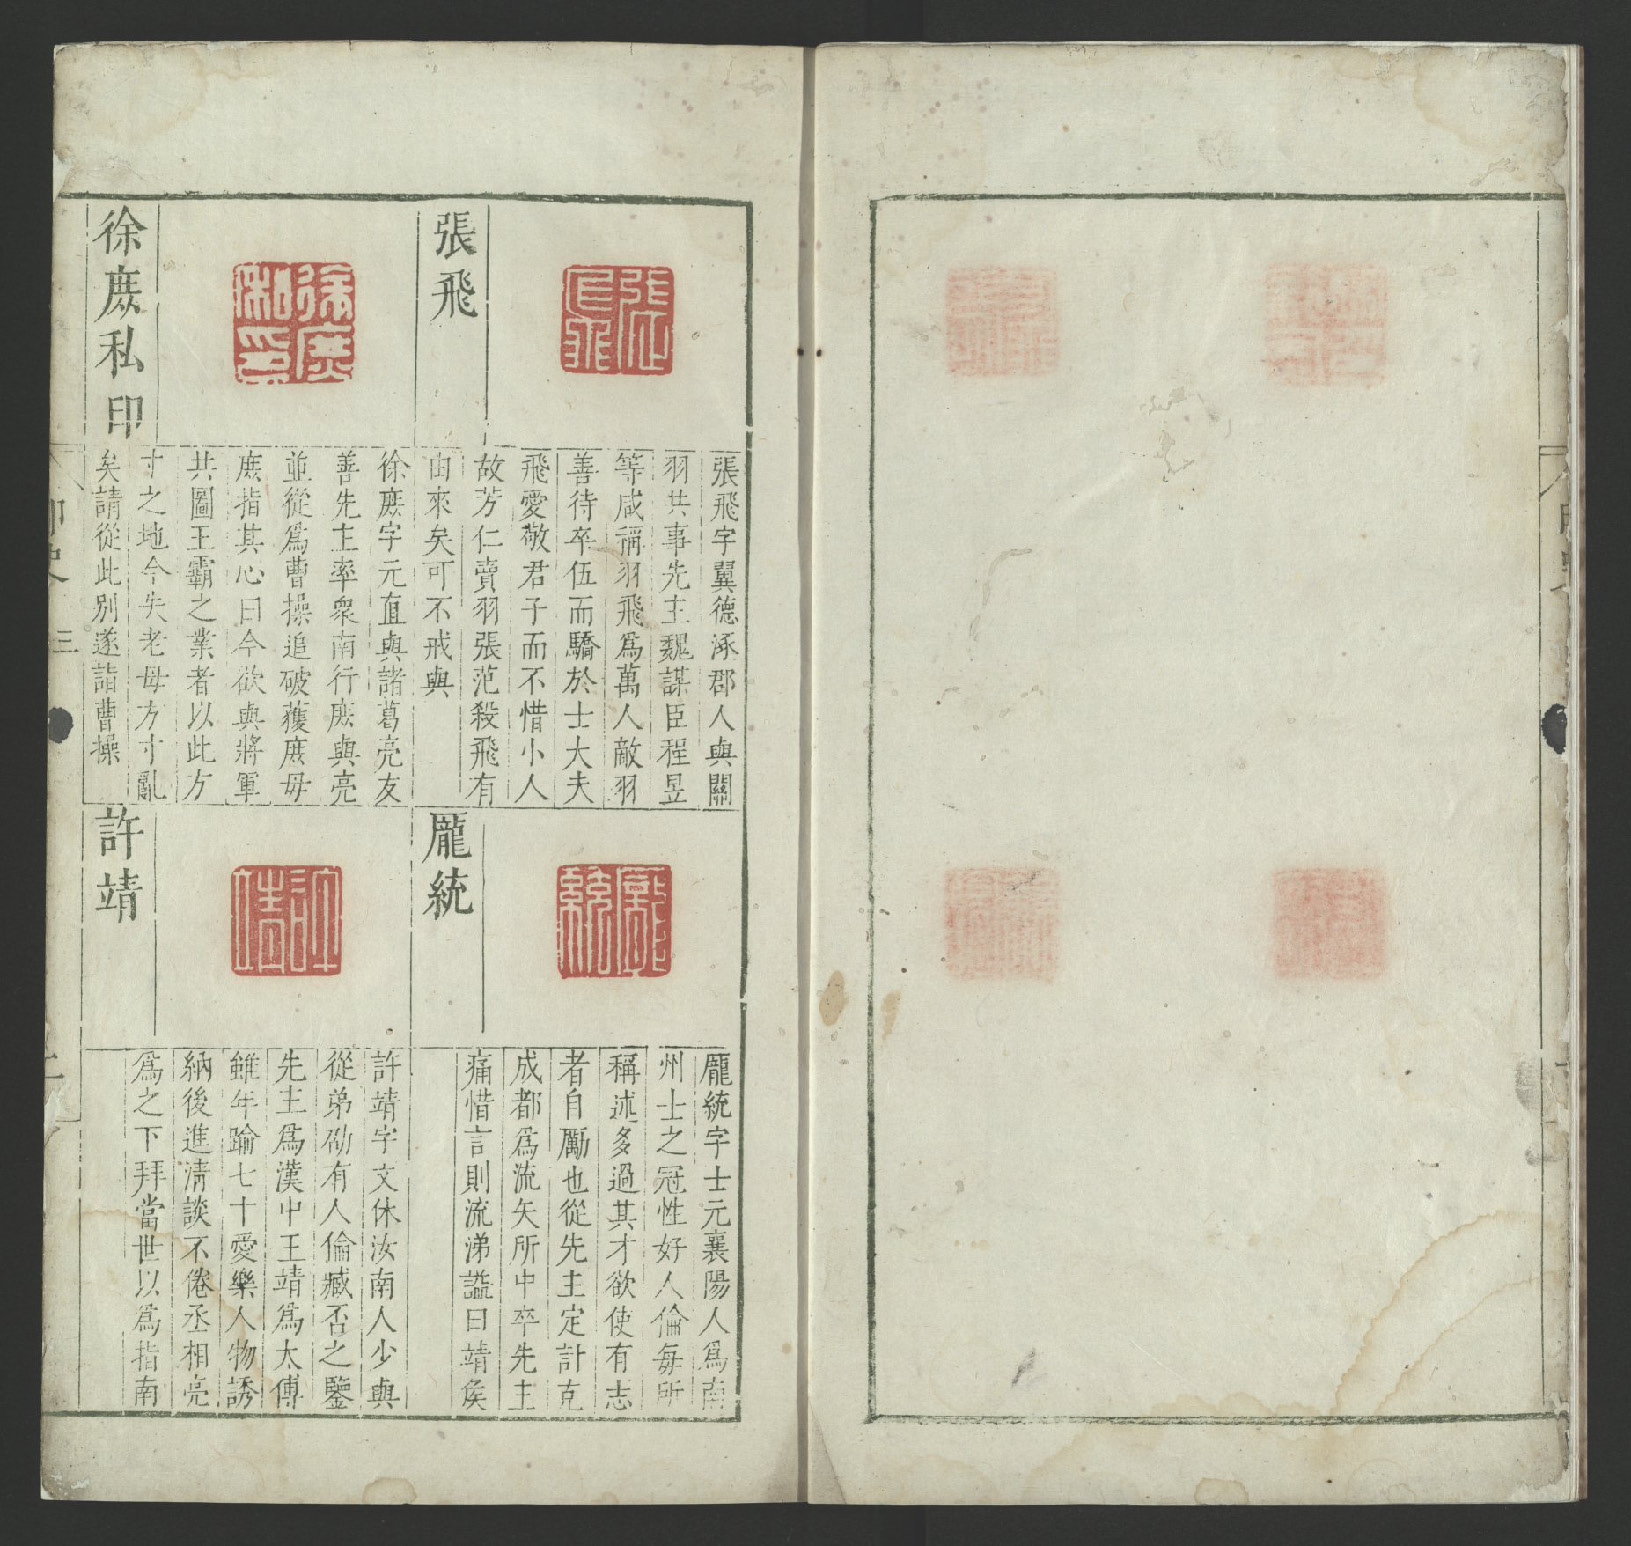 張飛
張飛字翼德涿郡人與關
羽共事先主魏謀臣程昱
等咸稱羽飛爲萬人敵羽
善待卒伍而驕於士大夫
飛愛敬君子而不惜小人
故芳仁賣羽張范殺飛有
由來矣可不戒與
徐庶私印
徐庶字元直與諸葛亮友
善先主率衆南行庶與亮
並從爲曹操追破獲庶母
庶指其心曰今欲與將軍
共圖王霸之業者以此方
寸之地今失老母方寸亂
矣請從此別遂詣曹操
龐統
龐統字士元襄陽人爲南
州士之冠性好人倫每所
稱述多過其才欲使有志
者自勵也從先主定計克
成都爲流矢所中卒先主
痛惜言則流涕謚曰靖矦
許靖
許靖字文休汝南人少與
從弟劭有人倫臧否之鑒
先主爲漢中王靖爲太傅
雖年踰七十愛樂人物誘
納後進淸談不倦丞相亮
爲之下拜當世以爲指南
印史
三